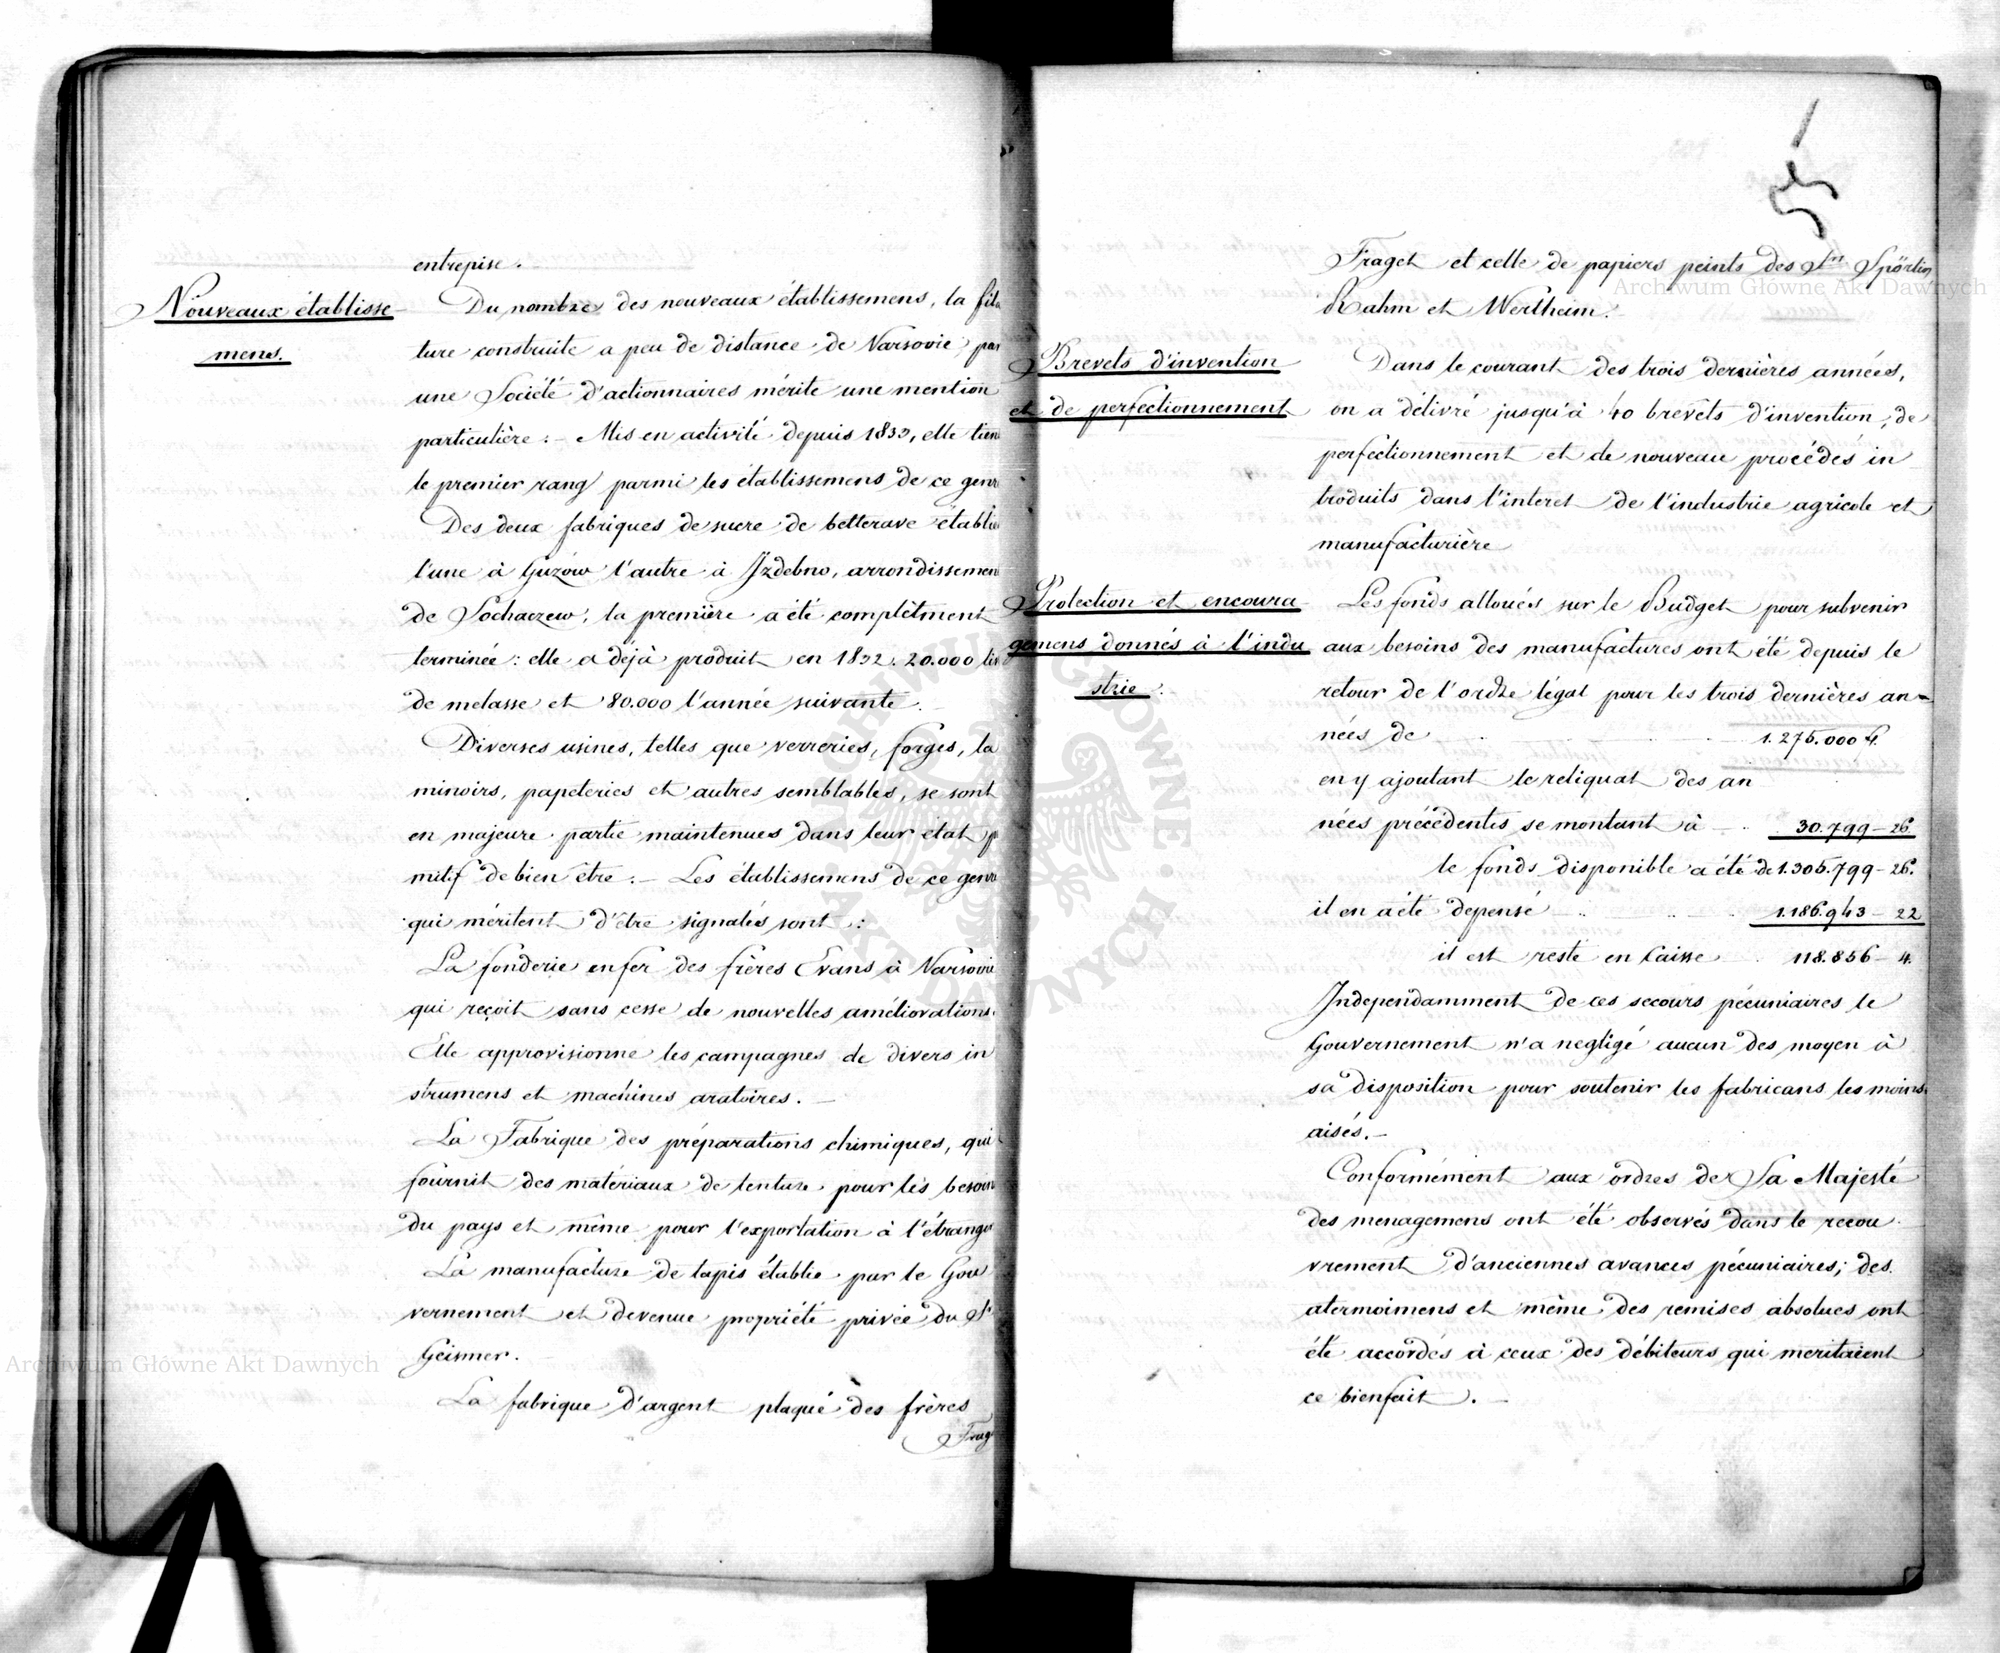 entrepise.
Nouveaux établisse-
mens.
Du nombre des nouveaux établissemens, la fila
ture construite a peu de distance de Varsovie, par
une Société d'actionnaires mérite une mention
particulière : – Mis en activité depuis 1833, elle tien
le premier rang parmi les établissemens de ce genre
Des deux fabriques de sucre de betterave établie
l'une à Guzów l'autre à Izdebno, arrondissement
de Sochaczew, la première a été complètment
terminée : elle a déjà produit en 1832. 20.000 liv
de melasse et 80.000 l'année suivante.
Diverses usines, telles que verreries, forges, la
minoirs, papeteries et autres semblables, se sont
en majeure partie maintenues dans leur état p
mitif de bien être. – Les établissemens de ce genre
qui méritent d'être signalés sont :
La fonderie en fer des frères Evans à Varsovie
qui reçoit sans cesse de nouvelles améliorations.
Elle approvisionne les campagnes de divers in
strumens et machines aratoires. –
La Fabrique des préparations chimiques, qui
fournit des matériaux de tenture pour les besoin
du pays et même pour l'exportation à l'étranger
La manufacture de tapis établie par le Gou
vernement et devenue propriété privée du Sr
Geismer.
La fabrique d'argent plaqué des frères
Frag
Fraget et celle de papiers peints des Srs Spörlin
Rahm et Wertheim.
Brevets d'invention
et de perfectionnement
Dans le courant des trois dernières années,
on a délivré jusqu'à 40 brevets d'invention, de
perfectionnement et de nouveau procédés in
troduits dans l'interet de l'industrie agricole et
manufacturière
Protection et encoura
gemens donnés à l'indu
strie.
Les fonds alloués sur le Budget pour subvenir
aux besoins des manufactures ont été depuis le
retour de l'ordre légal pour les trois dernières an-
nées de 1.275.000 f.
en y ajoutant le reliquat des an
nées précédentes se montant à 30.799 – 26
le fonds disponible a été de 1.305.799 – 26.
il en a été depensé 1.186.943 – 22
il est resté en Caisse 118.856 – 4.
Independamment de ces secours pécuniaires le
Gouvernement n'a negligé aucun des moyen à
sa disposition pour soutenir les fabricans les moins
aisés. –
Conformément aux ordres de Sa Majesté
des menagemens ont été observés dans le recou
vrement d'anciennes avances pécuniaires; des
atermoimens et même des remises absolues ont
été accordés à ceux des débiteurs qui meritaient
ce bienfait. –
Archiwum Główne Akt Dawnych
Archiwum Główne Akt Dawnych
ARCHIWUM GŁÓWNE AKT DAWNYCH